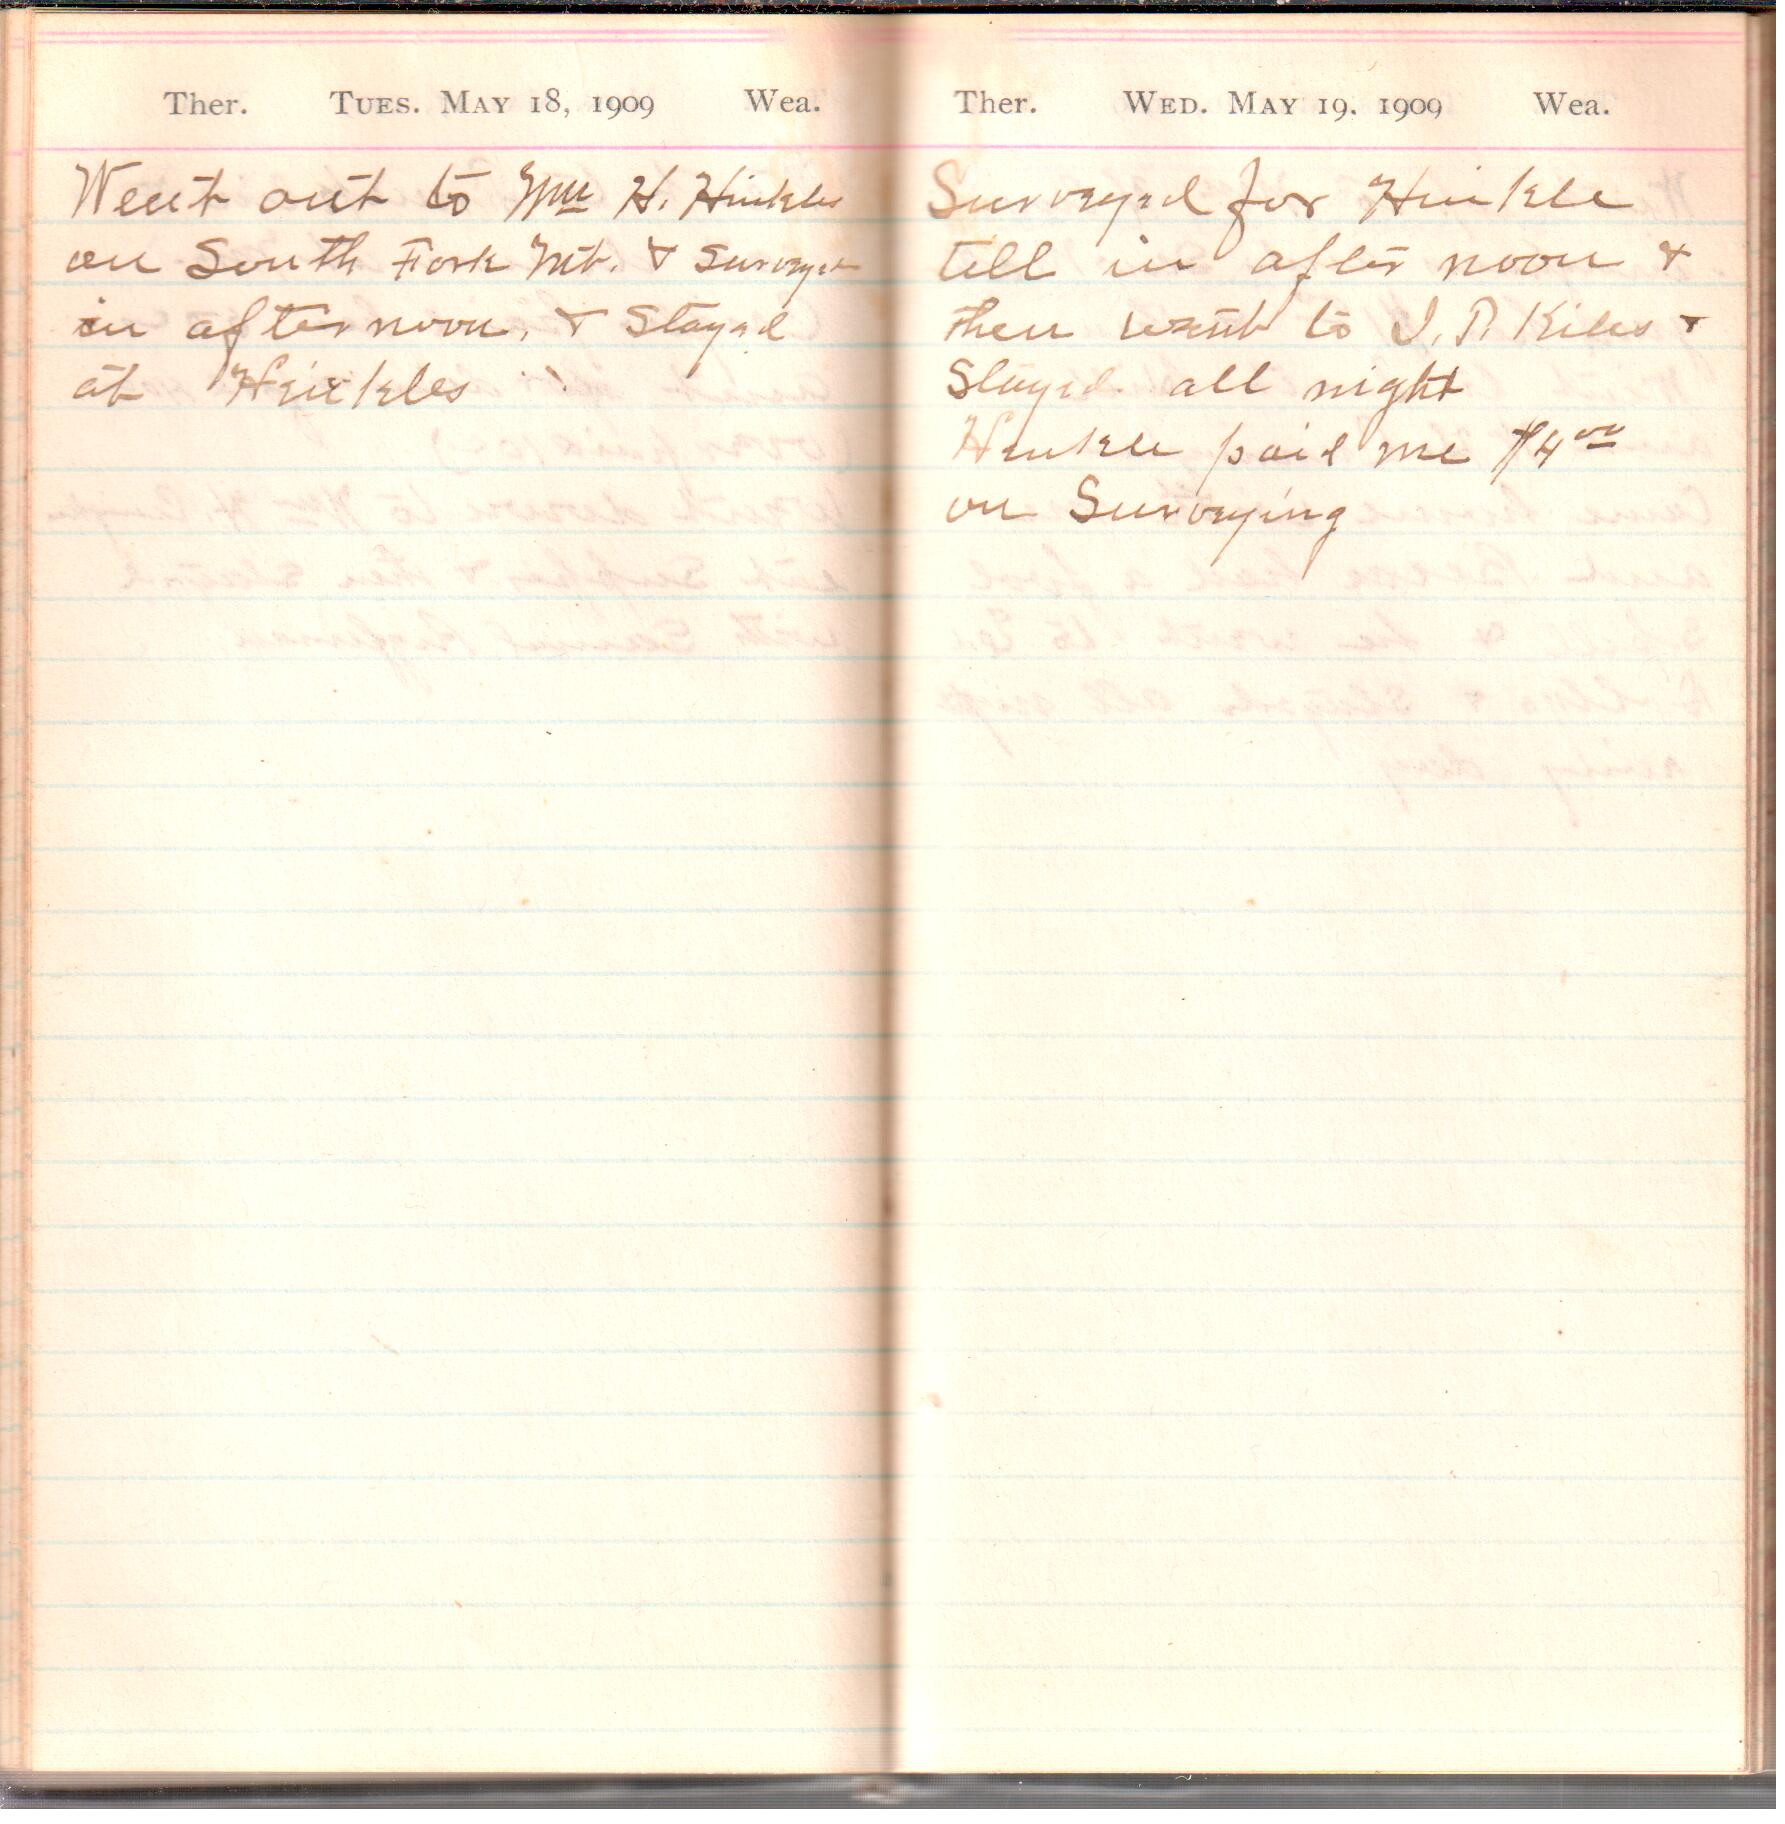 Ther. Tues. May 18, 1909 Wea.
Went out to Wm H. Hinkles
on South Fork Mt. & Surveyed
in afternoon, & Stayed
at Hinkles
Ther. Wed. May 19. 1909 Wea.
Surveyed for Hinkle
till in after noon &
then went to Kiles &
Stayed all night
Hinkle paid me $4.00
on Surveying